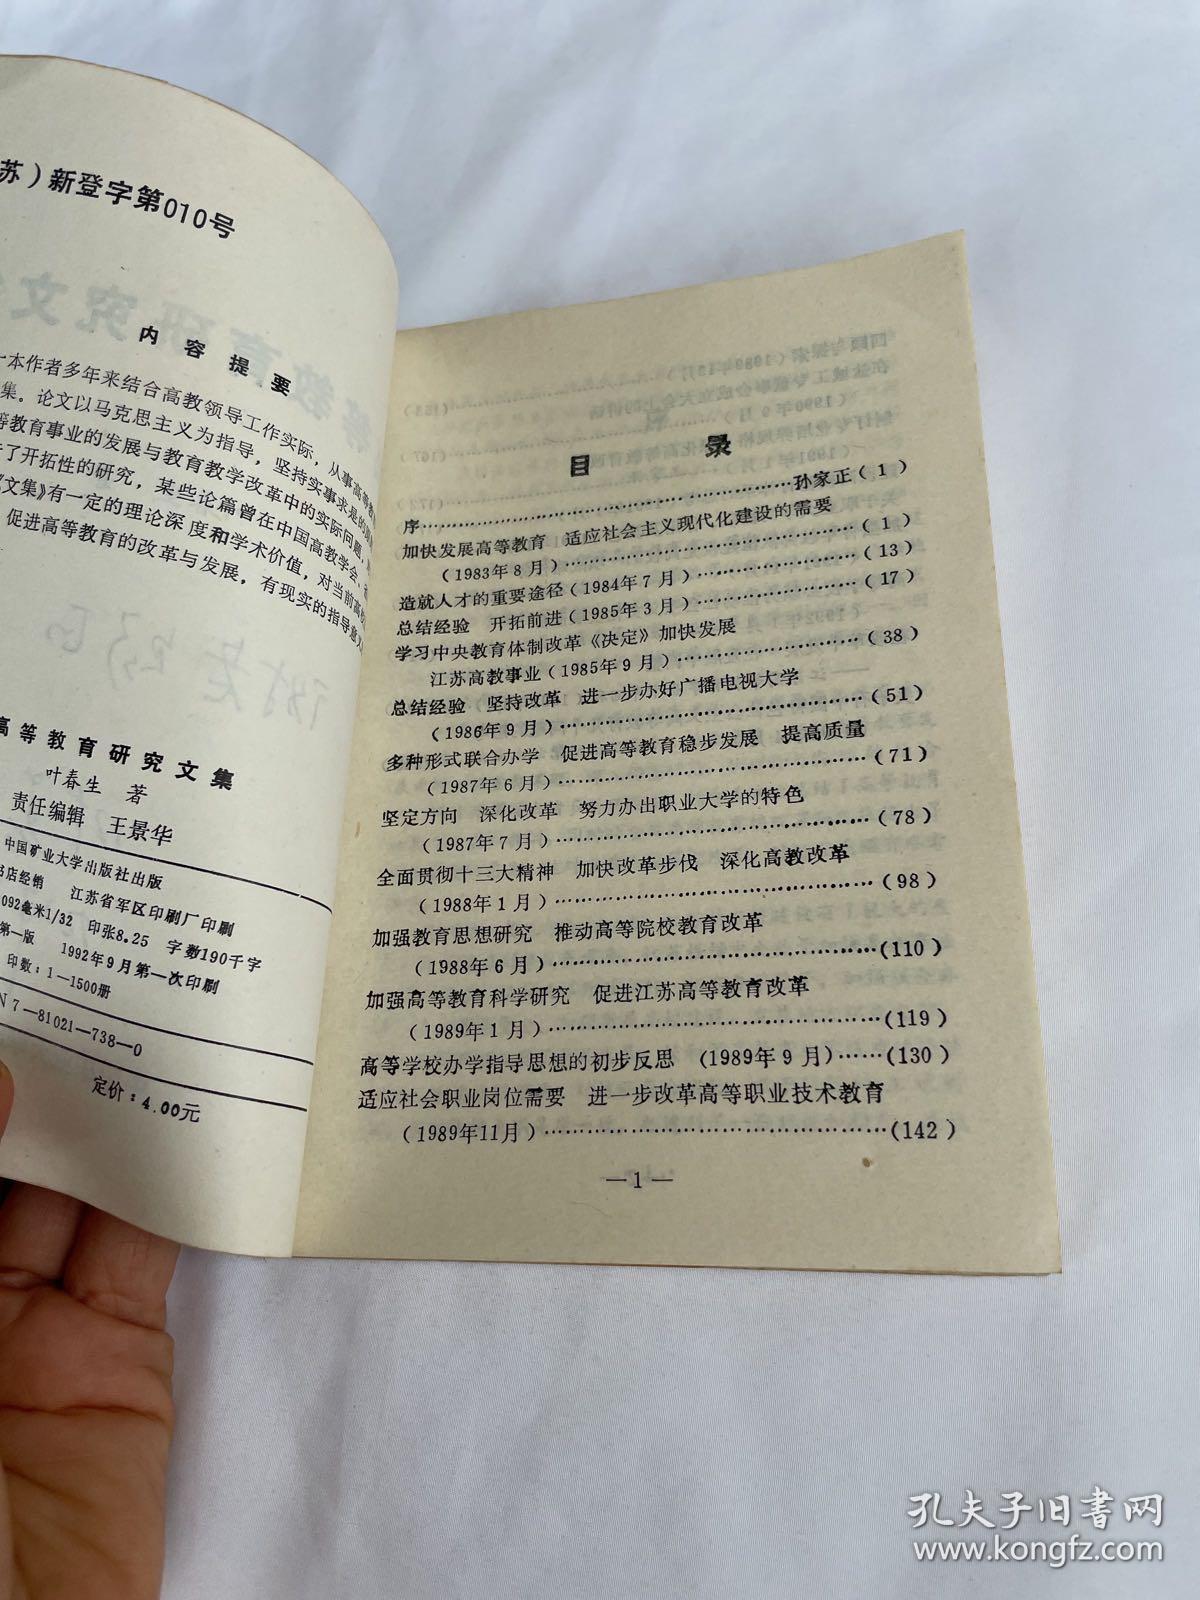 苏）新登字第010号
内容提要
本作者多年来结合高教领导工作实际，从事高等教
集。论文以马克思主义为指导，坚持实事求是的
等教育事业的发展与教育教学改革中的实际问题，
了开拓性的研究，某些论篇曾在中国高教学会、
《文集》有一定的理论深度和学术价值，对当前高
促进高等教育的改革与发展，有现实的指导意
高等教育研究文集
叶春生 著
责任编辑 王景华
中国矿业大学出版社出版
书店经销 江苏省军区印刷厂印刷
092毫米1/32 印张8.25 字数190千字
第一版 1992年9月第一次印刷
印数：1—1500册
N 7—81021—738—0
定价：4.00元
目 录
序……………………………………孙家正（1）
加快发展高等教育 适应社会主义现代化建设的需要
（1983年8月）……………………………………（1）
造就人才的重要途径（1984年7月）……………………（13）
总结经验 开拓前进（1985年3月）……………………（17）
学习中央教育体制改革《决定》加快发展
江苏高教事业（1985年9月）……………………（38）
总结经验 坚持改革 进一步办好广播电视大学
（1986年9月）……………………………………（51）
多种形式联合办学 促进高等教育稳步发展 提高质量
（1987年6月）……………………………………（71）
坚定方向 深化改革 努力办出职业大学的特色
（1987年7月）……………………………………（78）
全面贯彻十三大精神 加快改革步伐 深化高教改革
（1988年1月）……………………………………（98）
加强教育思想研究 推动高等院校教育改革
（1988年6月）……………………………………（110）
加强高等教育科学研究 促进江苏高等教育改革
（1989年1月）……………………………………（119）
高等学校办学指导思想的初步反思 （1989年9月）……（130）
适应社会职业岗位需要 进一步改革高等职业技术教育
（1989年11月）……………………………………（142）
—1—
孔夫子旧书网
www.kongfz.com